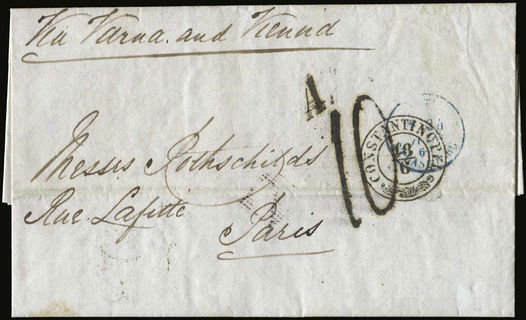 Via Varna. and Vienna
A.
10
CONSTANTINOPEL
18
6
Messrs Rothschilds
Rue Lafitte
Paris